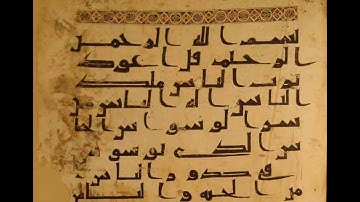 بسم الله الرحمن
الرحيم قل اعوذ
برب الناس ملك
الناس اله الناس من
شر الوسواس الخنا
س الذي يوسوس
في صدور الناس
من الجنة والناس